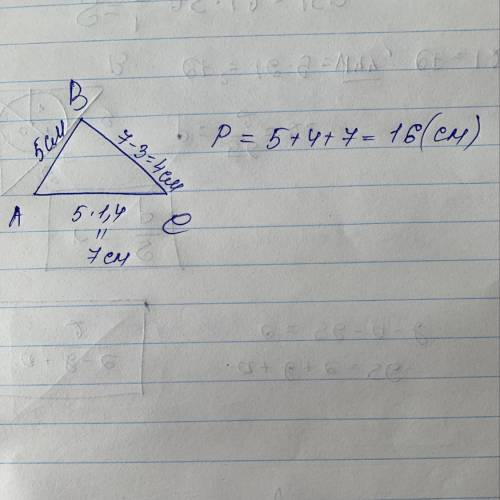 B
5см
7-3=4см
A
C
5·1,4
"
7см
P = 5+4+7= 16(см)